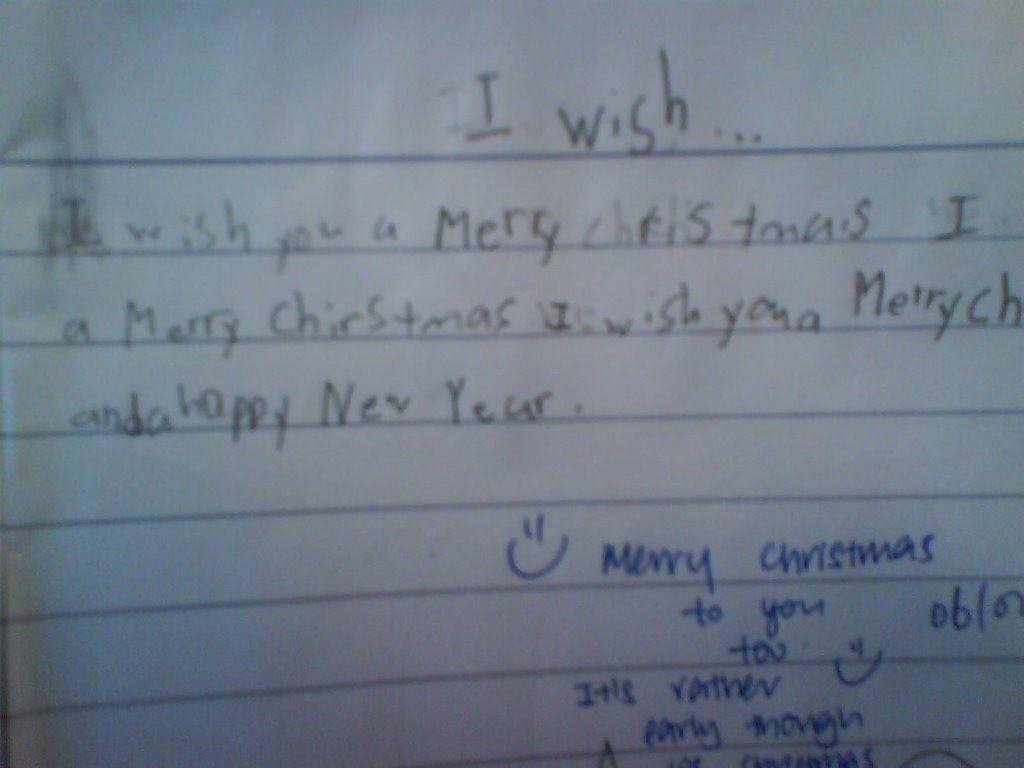 I wish...
I wish you a Merry christmas I
a Merry Chirstmas I wish you a Merry Ch
and a happy New Year.
Merry christmas
to you
too
06/0
It's rather
early though